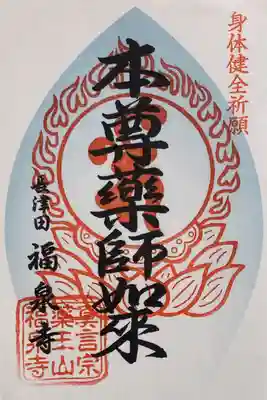 身体健全祈願
本尊藥師如来
長津田 福泉寺
真言宗
薬王山
福泉寺